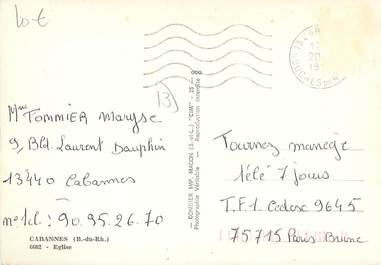 10 €
13)
Mme TOMMIER Maryse
9, Bld. Laurent Dauphin
13440 Cabannes
n° tel : 90.95.26.70
CABANNES (B.-du-Rh.)
6682 - Eglise
COMBIER IMP. MACON (S.-et-L.) "CIM"
Photographie Véritable - Reproduction Interdite
13 CAB
BOUCHES DU R
Tournez manège
télé 7 jours
T.F.1 Cedexe 9645
75715 Paris Brune